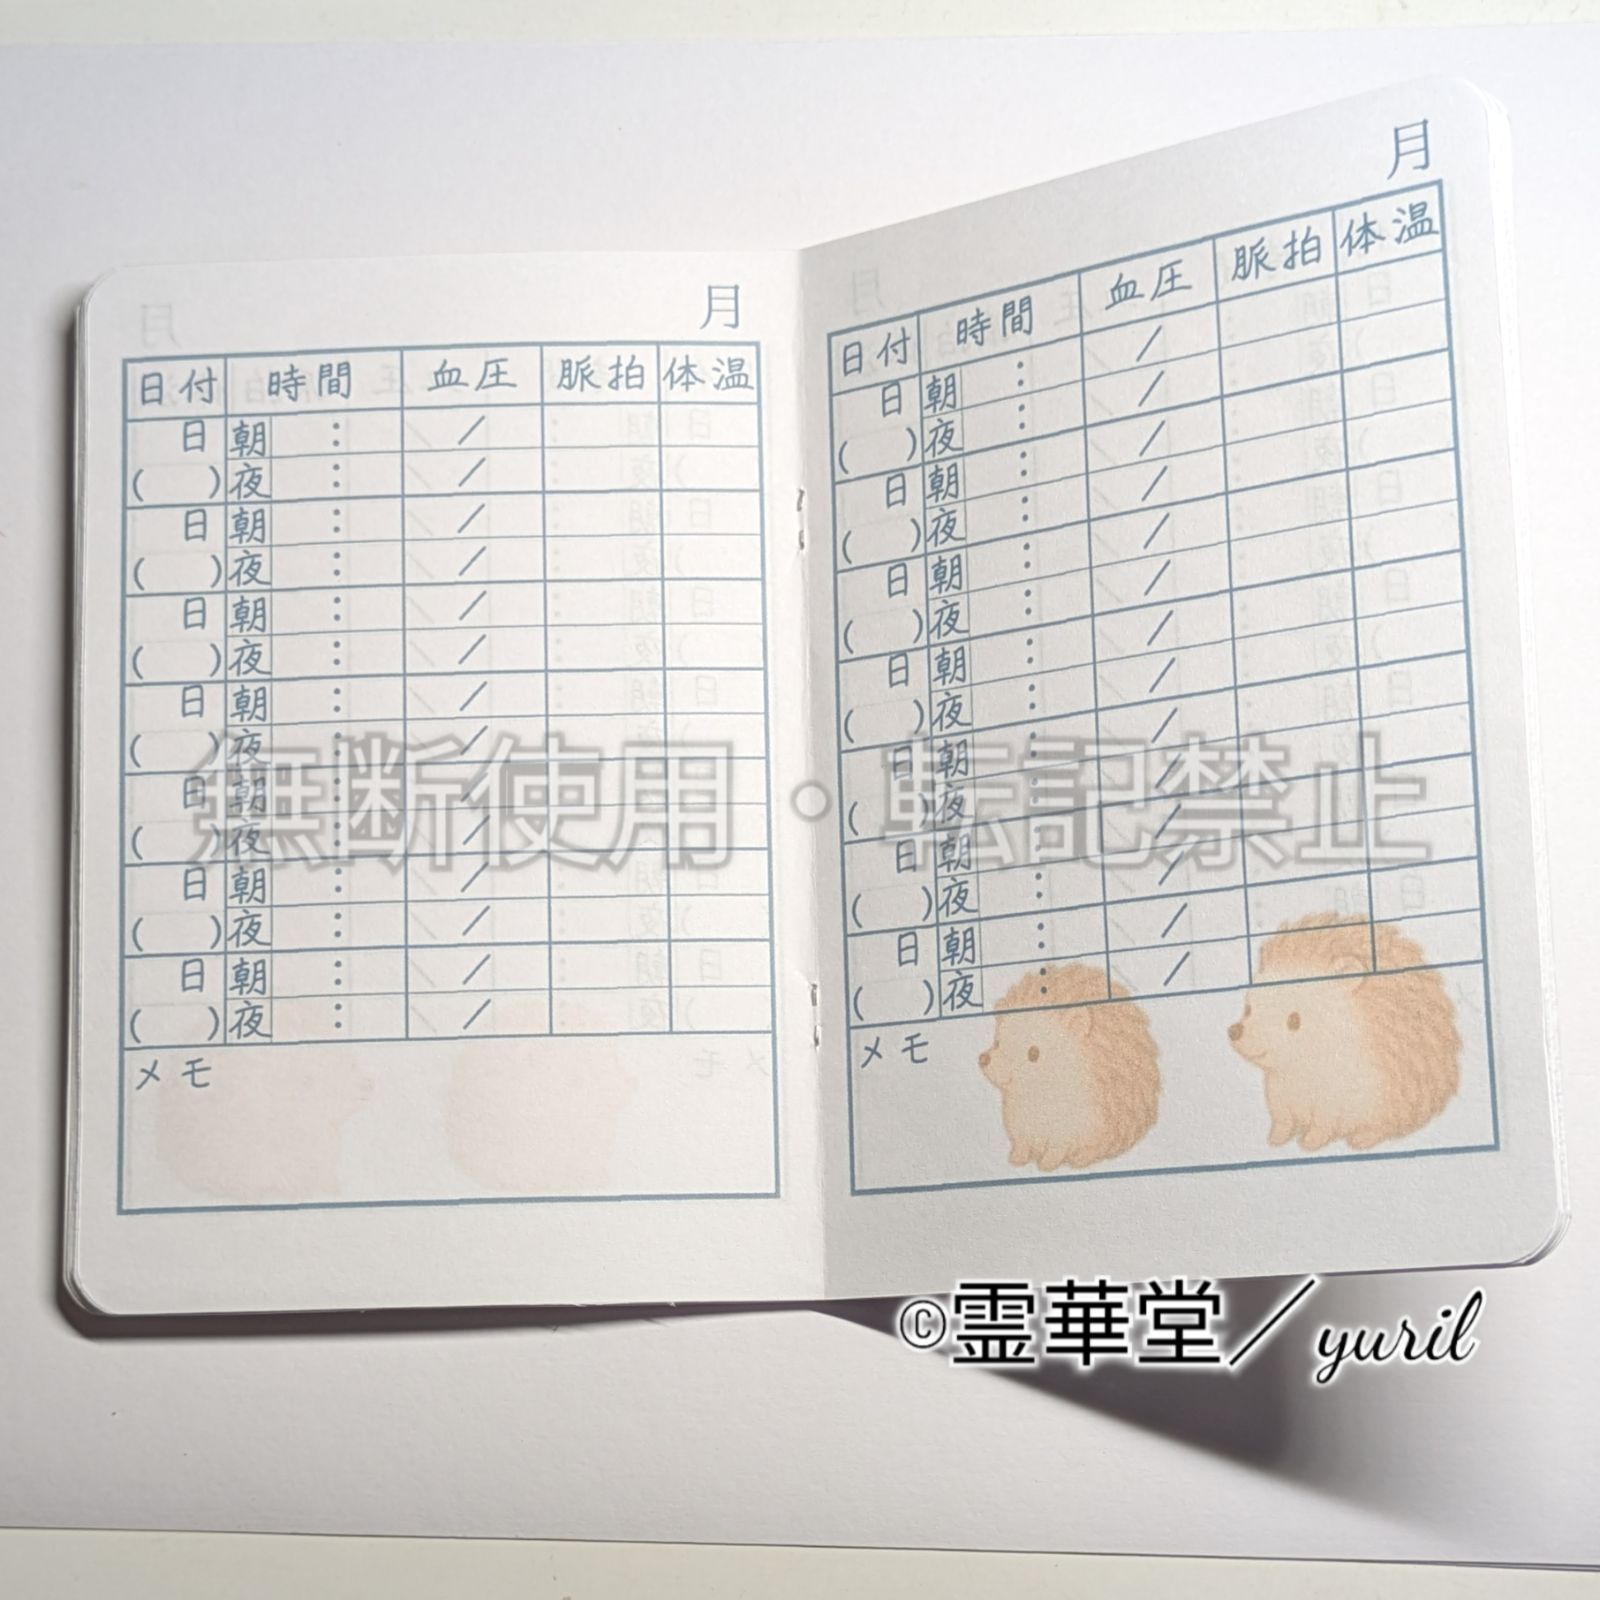 月
日付 時間 血圧 脈拍 体温
日 朝 : /
( ) 夜 : /
日 朝 : /
( ) 夜 : /
日 朝 : /
( ) 夜 : /
日 朝 : /
( ) 夜 : /
日 朝 : /
( ) 夜 : /
日 朝 : /
( ) 夜 : /
日 朝 : /
( ) 夜 : /
メモ
月
日付 時間 血圧 脈拍 体温
日 朝 : /
( ) 夜 : /
日 朝 : /
( ) 夜 : /
日 朝 : /
( ) 夜 : /
日 朝 : /
( ) 夜 : /
日 朝 : /
( ) 夜 : /
日 朝 : /
( ) 夜 : /
日 朝 : /
( ) 夜 : /
メモ
無断使用・転記禁止
©霊華堂/yuril